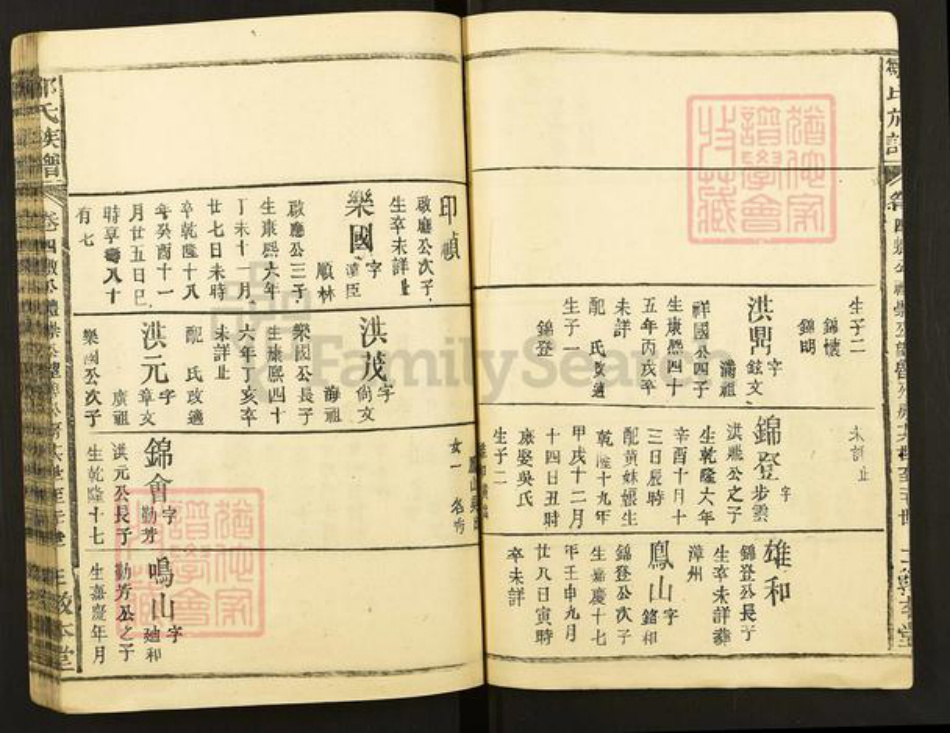 生子二
錦懷
錦明
洪鼎
字
鉉文
滿祖
祥國公四子
生康熙四十
五年丙戌卒
未詳
配 氏改適
生子一
錦登
未詳止
錦登
字
步雲
洪鼎公之子
生乾隆六年
辛酉十月十
三日辰時
配黃妹娘生
乾隆十九年
甲戌十二月
十四日丑時
續娶吳氏
生子二
女一
雄和
錦登公長子
生卒未詳葬
漳州
鳳山
字
銘和
錦登公次子
生嘉慶十七
年壬申九月
廿八日寅時
卒未詳
印禎
啟廳公次子
生卒未詳止
樂國
字
達臣
順林
啟廳公三子
生康熙六年
丁未十一月
廿七日未時
卒乾隆十八
年癸酉十一
月廿五日巳
時享壽八十
有七
洪茂
字
尚文
海祖
樂國公長子
生康熙四十
六年丁亥卒
未詳止
配 氏改適
洪元
字
章文
廣祖
樂國公次子
錦會
字
勤芳
洪元公長子
生乾隆十七
鳴山
字
廸和
勤芳公之子
生嘉慶年月
氏族譜
卷四
FamilySearch
猶他家
譜學會
收藏
猶他家
譜學會
收藏